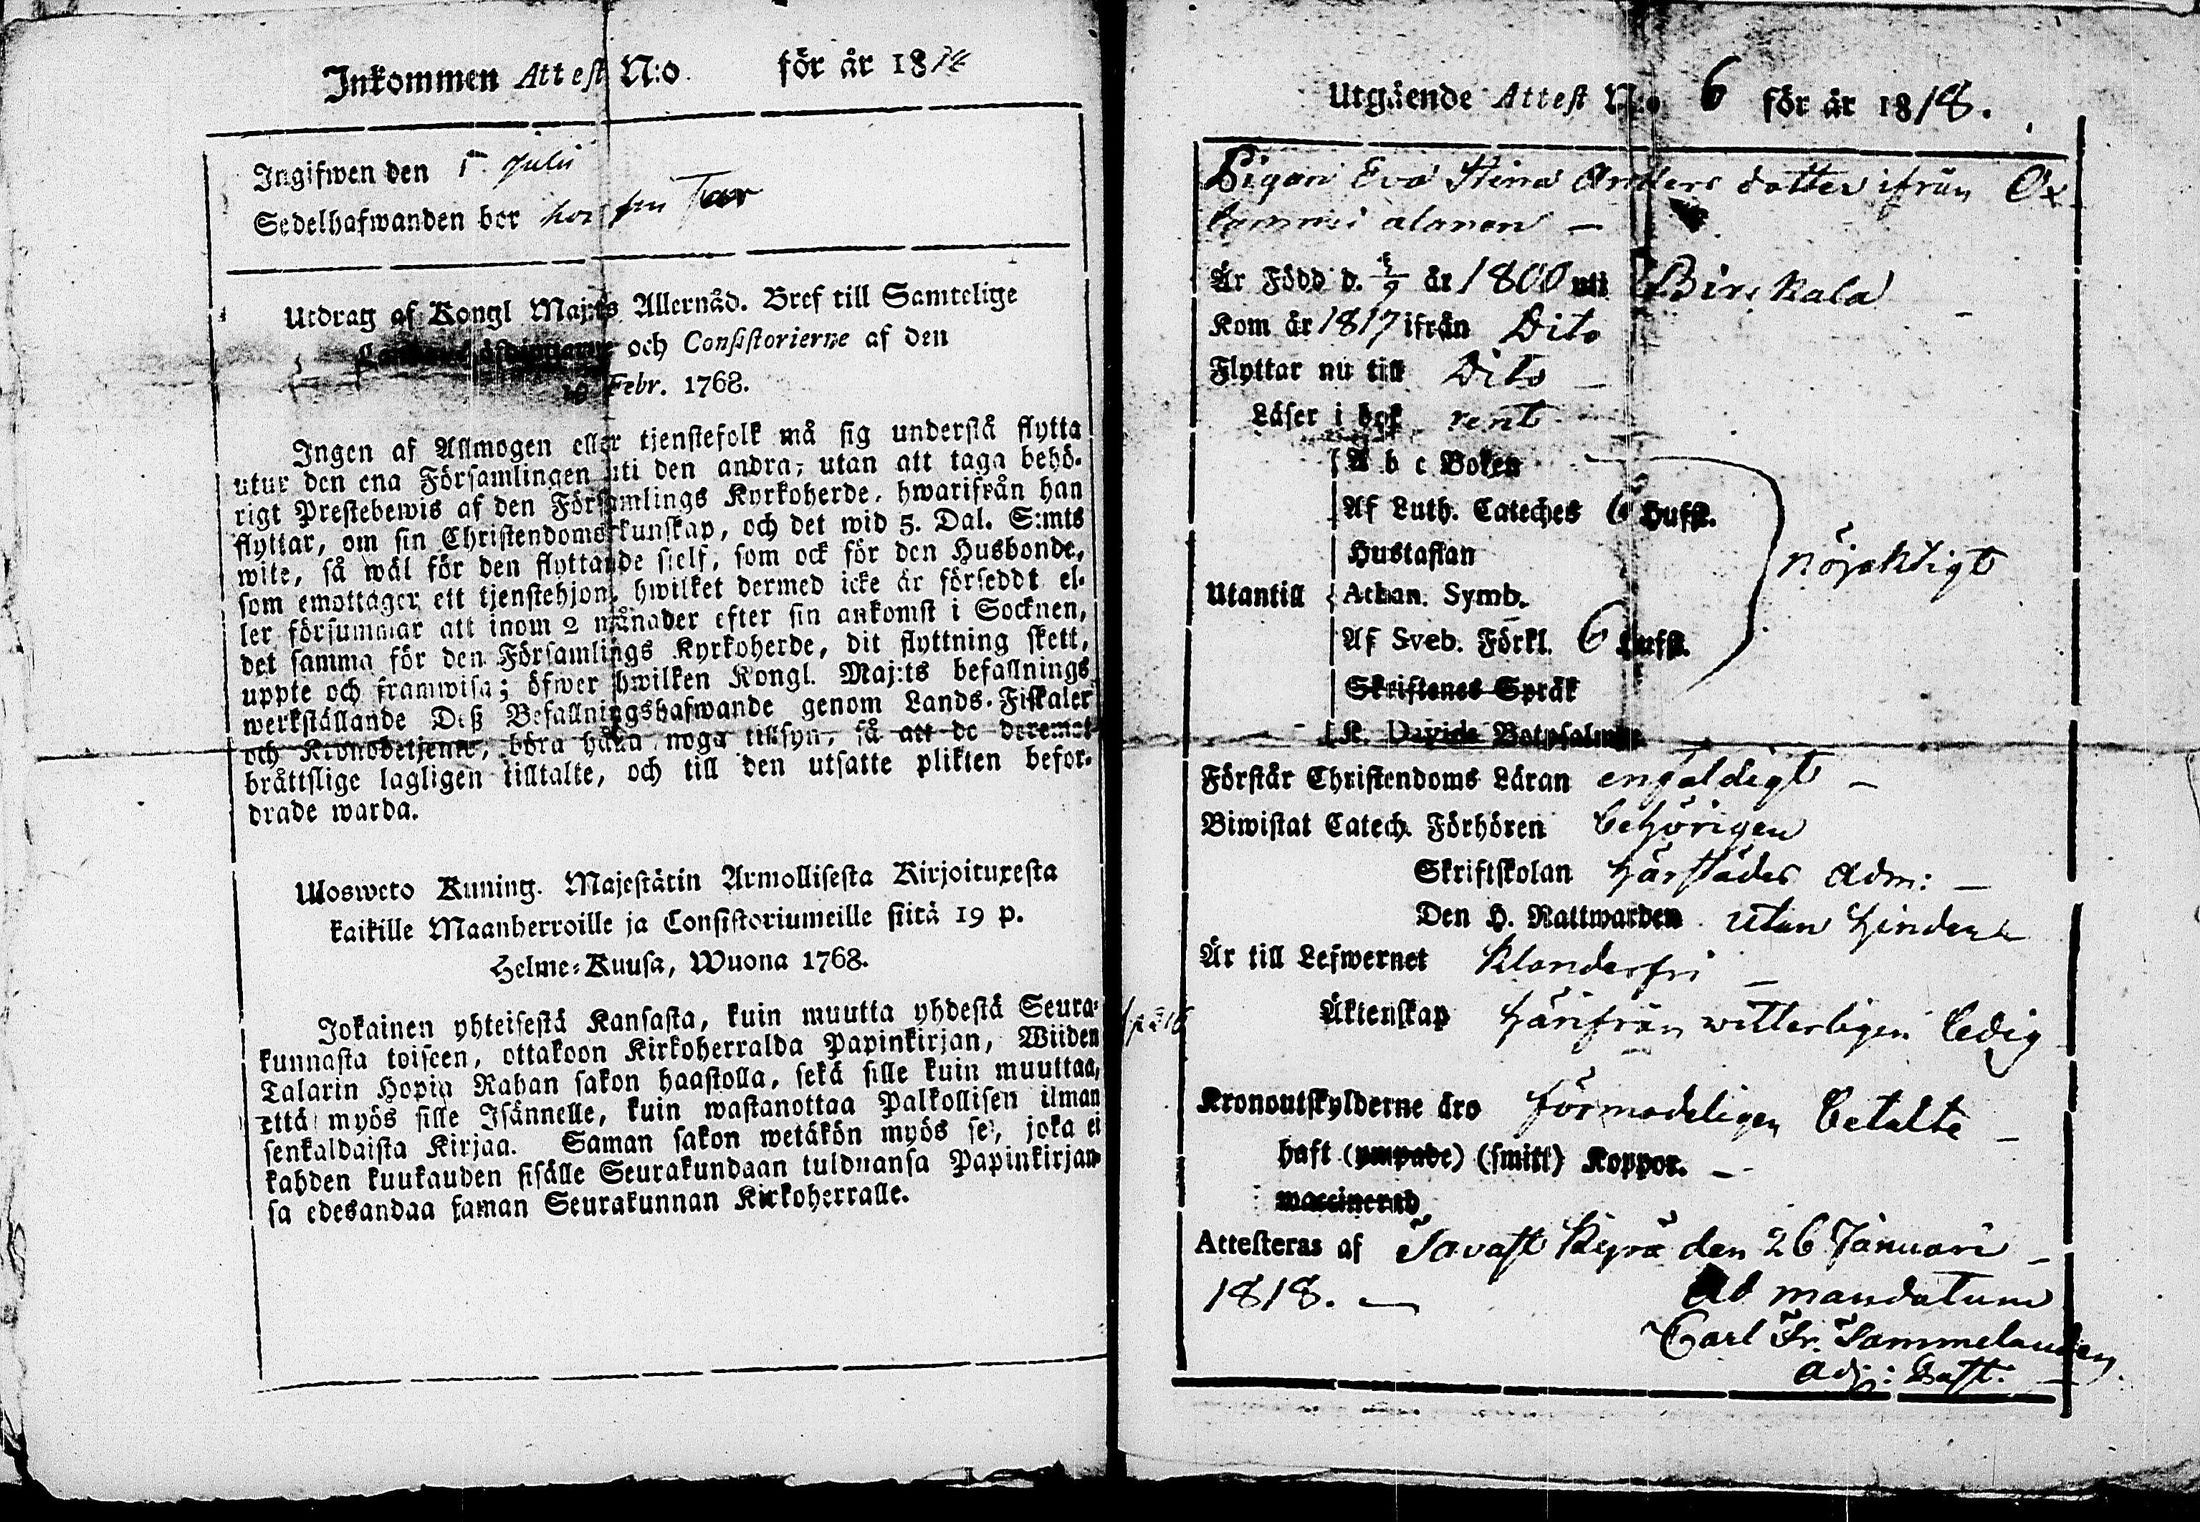 Inkommen Attest N:o för år 18
Ingifwen den 1 Julii
Sedelhafwanden bor hos sin Far
Utdrag af Kongl Maj:ts Allernåd. Bref till Samtelige
och Consistorierne af den
19 Febr. 1768.
Ingen af Allmogen eller tjenstefolk må sig understå flytta
utur den ena Församlingen uti den andra, utan att taga behö-
rigt Prestebewis af den Församlings Kyrkoherde, hwarifrån han
flyttar, om sin Christendomskunskap, och det wid 5. Dal. S:mts
wite, så wäl för den flyttande sjelf, som ock för den Husbonde,
som emottager ett tjenstehjon, hwilket dermed icke är förseddt el-
ler försummar att inom 2 månader efter sin ankomst i Socknen,
det samma för den Församlings Kyrkoherde, dit flyttning skett,
uppte och framwisa; öfwer hwilken Kongl. Maj:ts befallnings
werkställande Deß Befallningshafwande genom Lands-Fiskaler
och Kronobetjente, böra hålla noga tillsyn, så att de deremot
bråttslige lagligen tilltalte, och till den utsatte plikten befor-
drade warda.
Ulosweto Kuning. Majestätin Armollisesta Kirjoituxesta
kaikille Maanherroille ja Consistoriumeille siitä 19 p.
Helme-Kuusa, Wuona 1768.
Jokainen yhteisestä Kansasta, kuin muutta yhdestä Seura-
kunnasta toiseen, ottakoon Kirkoherralda Papinkirjan, Wiiden
Talarin Hopia Rahan sakon haastolla, sekä sille kuin muuttaa,
että myös sille Isännelle, kuin wastanottaa Palkollisen ilman
senkaldaista Kirjaa. Saman sakon wetäkön myös se, joka ei
kahden kuukauden sisälle Seurakundaan tulduansa Papinkirjan-
sa edesandaa saman Seurakunnan Kirkoherralle.
Utgående Attest N:o 6 för år 1818.
Pigan Eva Stina Anders dotter ifrån Ox
Är Född d. år 1800 uti Birkala
Kom år 1817 ifrån Dito
Flyttar nu till Dito
Läser i bok rent
A b c Boken
Af Luth. Cateches 6 Hufst.
Hustaflan
Utantill Athan. Symb. nöjaktigt
Af Sveb. Förkl. 6 Hufst.
Skriftenes Språk
K. Davids Botpsalmer
Förstår Christendoms Läran enfaldigt
Biwistat Catech. Förhören behörigen
Skriftskolan härstädes adm:
Den H. Nattwarden utan hinder
Är till Lefwernet klanderfri
Äktenskap härifrån witterligen ledig
Kronoutskylderne äro förmodeligen betalte
haft (ympade) (smitt) Koppor.
waccinerad
Attesteras af Tavast Kyrö den 26 Januari
1818.
Ad mandatum
Carl Fr. Sammelander
adj: